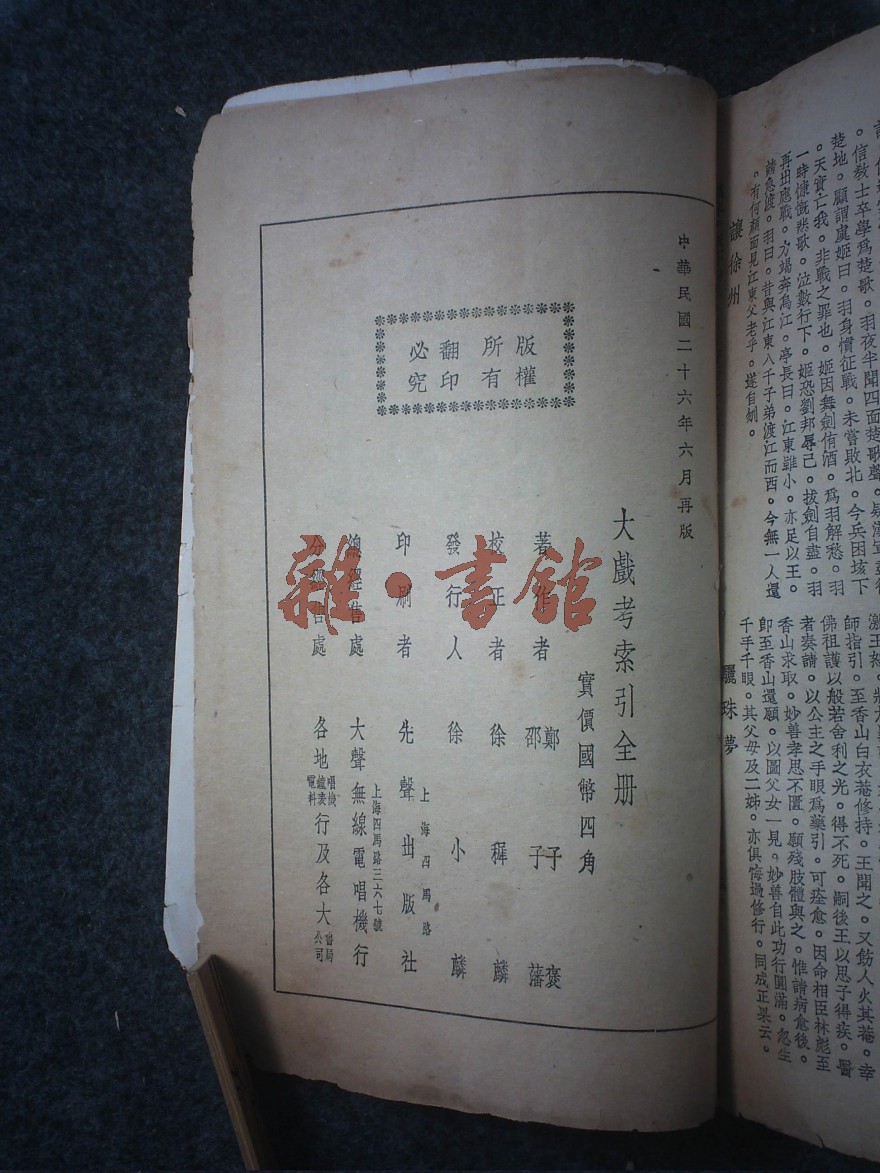 中華民國二十六年六月再版
版權所有
翻印必究
大戲考索引全册
實價國幣四角
著作者 鄭子褒 邵子藩
校正者 徐穉麟
發行人 徐小麟
上海四馬路
印刷者 先聲出版社
上海四馬路三六七號
總經售處 大聲無線電唱機行
分經售處 各地唱機鐘表電料行及各大書局公司
雜·書館
。信教士卒學爲楚歌。羽夜半聞四面楚歌聲。
楚地。顧謂虞姬曰。羽身慣征戰。未嘗敗北。今兵困垓下
。天實亡我。非戰之罪也。姬因舞劍侑酒。爲羽解愁。羽
一時慷慨悲歌。泣數行下。姬恐劉邦辱己。拔劍自盡。羽
再出應戰。方端奔烏江。亭長曰。江東雖小。亦足以王。
請急渡。羽曰。昔與江東八千子弟渡江而西。今無一人還
。有何顏面見江東父老乎。遂自刎。
讓徐州
師指引。至香山白衣菴修持。王聞之。又飭人火其菴。幸
佛祖護以般若舍利之光。得不死。嗣後王以思子得疾。醫
者奏請。以公主之手眼爲藥引。可痊愈。因命相臣林彪至
香山求取。妙善孝思不匱。願殘肢體與之。惟請病愈後。
即至香山還願。以圖父女一見。妙善自此功行圓滿。忽生
千手千眼。其父母及二姊。亦俱悔過修行。同成正果云。
驪珠夢